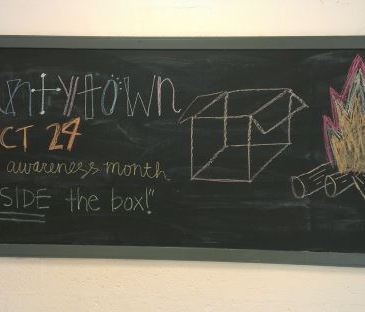 ntytown
CT 24
awareness month
SIDE the box!"